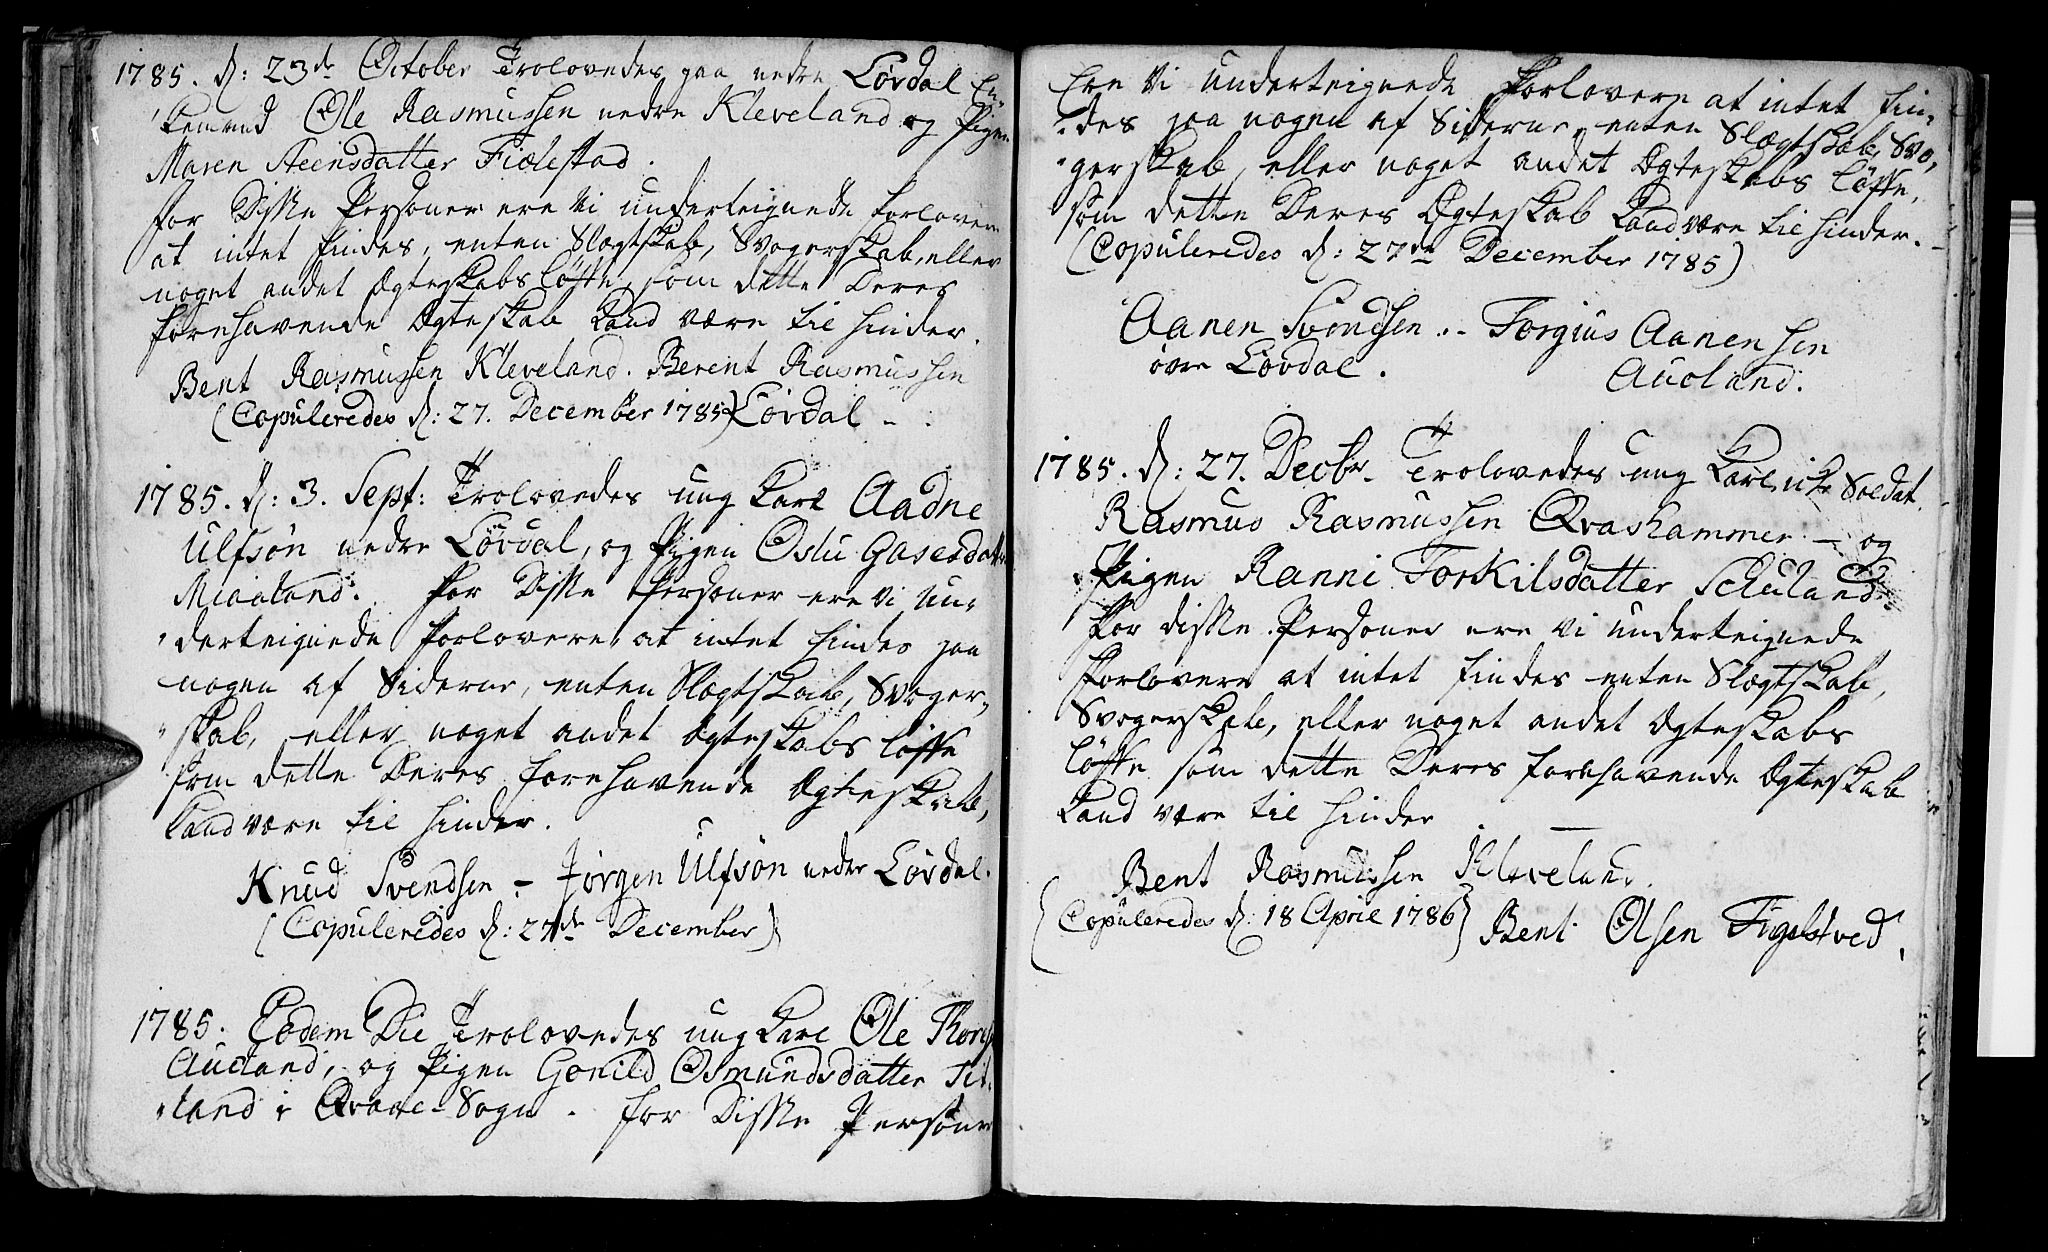 1785. d: 23de October Trolovedes paa nedre Løvdal En-
kemand Ole Rasmussen nedre Kleveland og Pigen
Maren Steensdatter Fiælestad.
for Disse Personer ere vi underteignede forlovere
at intet findes, enten Slægtskab, Svogerskab, eller
noget andet Ægteskabs løfte, som dette Deres
forehavende Ægteskab kand være til hinder.
Bent Rasmussen Kleveland. Berent Rasmussen
(Copuleredes d: 27. December 1785) Løvdal -
1785. d: 3. Sept: Trolovedes ung Karl Aadne
Ulfsøn nedre Løvdal, og Pigen Oslu Gasesdatter
Miaaland. for Disse Personer ere vi un-
derteignede forlovere, at intet findes paa
nogen af Siderne, enten Slægtskab, Svoger-
skab, eller noget andet Ægteskabs løfte
som dette Deres forehavende Ægteskab,
kand være til hinder.
Knud Svendsen - Jørgen Ulfsøn neder Løvdal.
(Copuleredes d: 27de December)
1785. Eodem Die Trolovedes ung Karl Ole
Aucland, og Pigen Gonild Osmundsdatter Tit-
land i Qvaae-Sogn. for Disse Personer
Ere vi underteignede forlovere at intet fin-
des paa nogen af Siderne, enten Slægtskab, Svo-
gerskab, eller noget andet Ægteskabs løfte,
som dette Deres Ægteskab kand være til hinder.
(Copuleredes d: 27de December 1785)
Aanen Svendsen - Torgius Aanensen
øvre Løvdal. Aucland.
1785. d: 27. Decbr. Trolovedes ung Karl, Soldat.
Rasmus Rasmussen Qvashammer - og
Pigen Ranni Torkilsdatter Schuland.
For disse Personer ere vi underteignede
forlovere at intet findes enten Slægtskab,
Svogerskab, eller noget andet Ægteskabs
løfte som dette Deres forehavende Ægteskab
kand være til hinder
Bent Rasmussen Kleveland.
(Copuleredes d: 18 April 1786) Bent Olsen Figelstved.